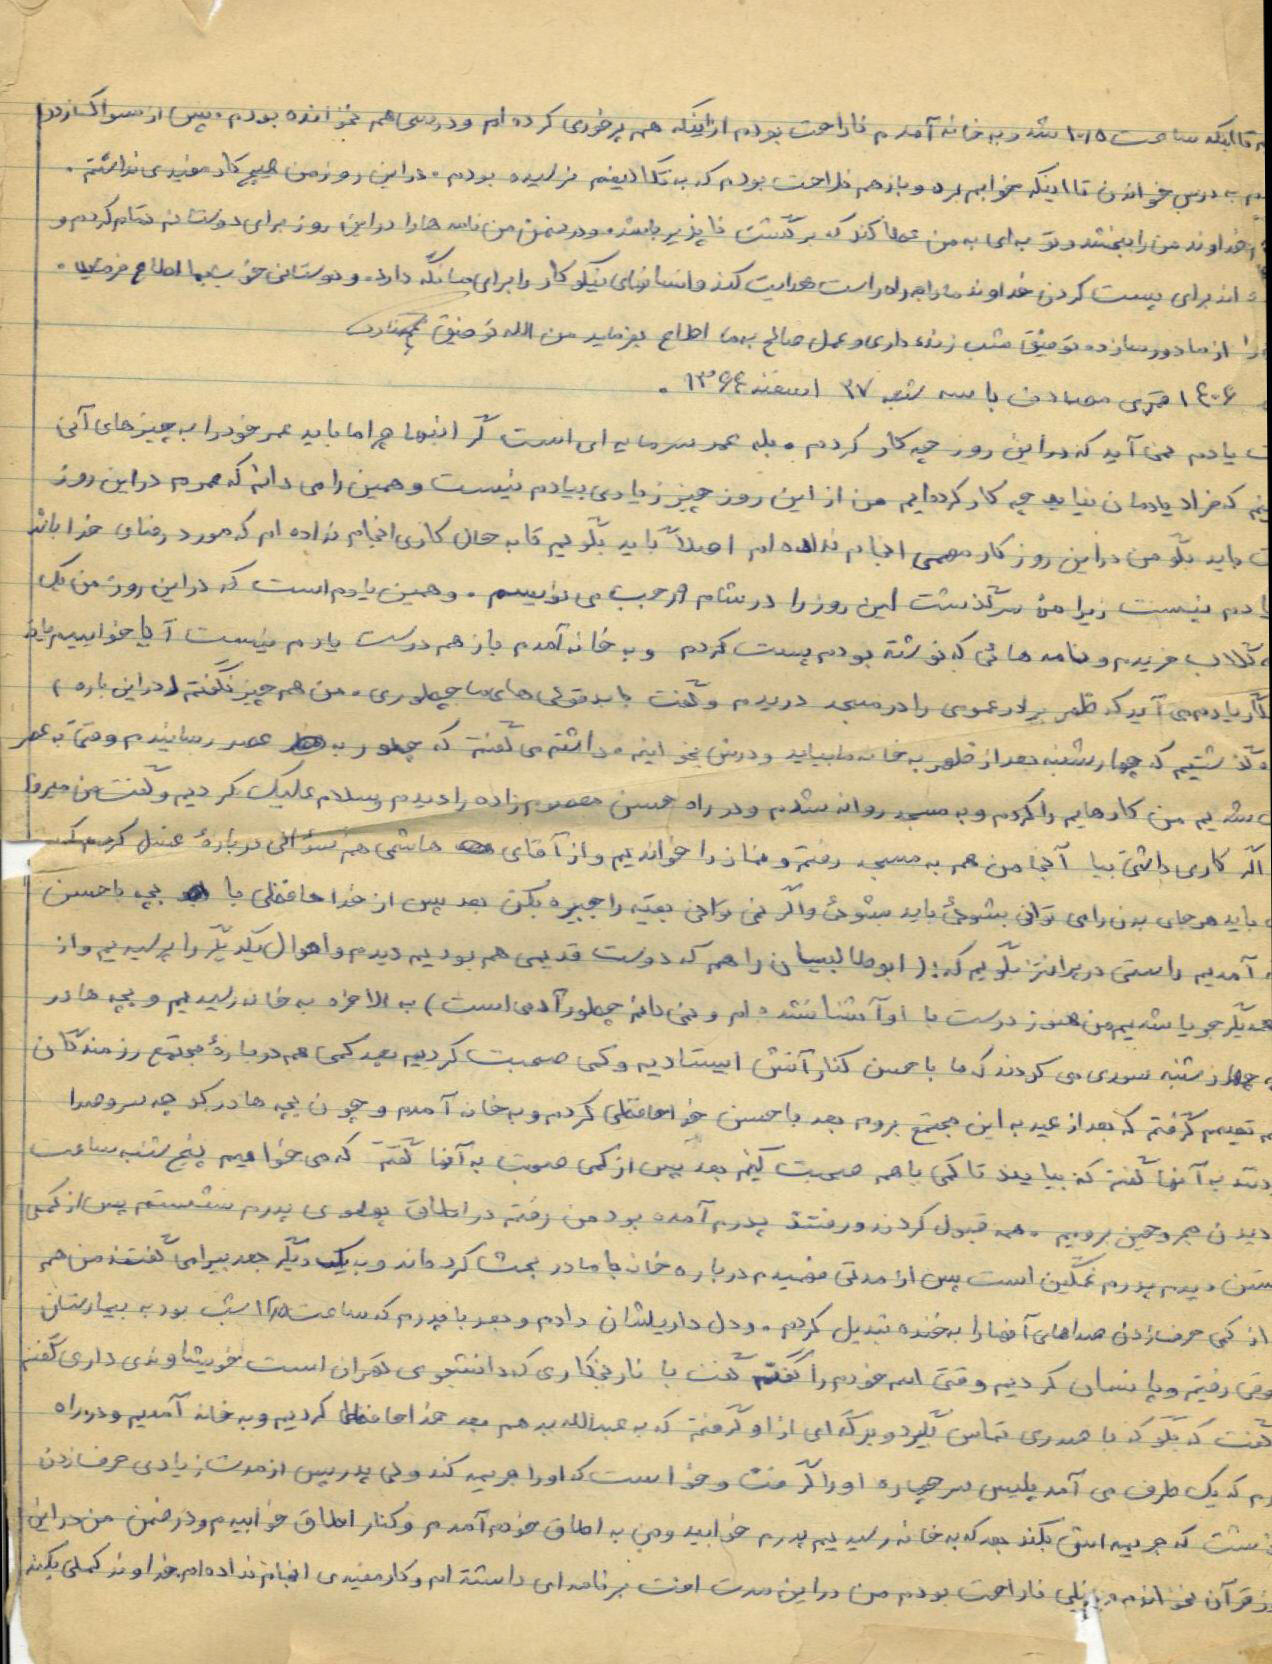 تا اینکه ساعت ۱۰/۱۵ شد و به خانه آمدم ناراحت بودم از اینکه هم پرخوری کرده ام و درسی هم نخوانده بودم. پس از مسواک زدن
به درس خواندن تا اینکه خوابم برد و باز هم ناراحت بودم که به تکالیفم نرسیده بودم. در این روز من هیچ کار مفیدی نداشتم.
خداوند من را ببخشد و توبه ای به من عطا کند که برگشت ناپذیر باشد. و در ضمن من نامه ها را در این روز برای دوستانم تمام کردم و
اند برای پست کردن خداوند ما را به راه راست هدایت کند و انسانهای نیکوکار را برای ما نگه دارد. و دوستانی خوب بما اطلاع فرماید.
را از ما دور سازد و توفیق شب زنده داری و عمل صالح به ما اطلاع بفرماید من الله توفیق
۱۴۰۶ قمری مصادف با سه شنبه ۲۷ اسفند ۱۳۶۴.
یادم نمی آید که در این روز چه کار کردم. بله عمر سرمایه ای است گر انبها چرا ما باید عمر خود را به چیزهای آنی
که فردا یادمان نیاید چه کار کرده ایم من از این روز چیز زیادی بیادم نیست و همین را می دانم که عمرم در این روز
باید بگو من در این روز کار مهمی انجام نداده ام اصلاً باید بگویم تا به حال کاری انجام نداده ام که مورد رضای خدا باشد
یادم نیست زیرا من سرگذشت این روز را در شام ۹ رجب می نویسم. و همین یادم است که در این روز من یک
گلاب خریدم و نامه هائی که نوشته بودم پست کردم و به خانه آمدم باز هم درست یادم نیست آیا خوابیدم یا نه
یادم می آید که ظهر برادر عمومی را در مسجد دریدم و گفت با بدقولی های ما چطوری. من هم چیز نگفتم (در این باره)
گذشتیم که چهارشنبه بعد از ظهر به خانه ما بیاید و درس بخوانیم. داشتم می گفتم که چطور به عصر رسانیدم وقتی به عصر
شدیم من کارهایم را کردم و به مسجد روانه شدم و در راه حسن معصوم زاده را دیدم و سلام علیک کردیم و گفت من میروم
اگر کاری داشتی بیا آنجا من هم به مسجد رفتم و نماز را خواندیم و از آقای هاشمی هم سؤالی دربارهٔ غسل کردم که
باید هر جای بدن را می توانی بشوئی باید بشوئی و اگر نمی توانی بقیه را جبیره بکن بعد پس از خدا حافظی با بچه با حسن
آمدیم راستی در پرانتز بگویم که: (ابوطالبیان را هم که دوست قدیمی هم بودیم دیدم و احوال یکدیگر را پرسیدیم و از
همدیگر جویا شدیم من هنوز درست با او آشنا نشده ام و نمی دانم چطور آدمی است) به الاخره به خانه رسیدیم و بچه ها در
چهارشنبه سوری می کردند که ما با حسن کنار آتش ایستادیم و کمی صحبت کردیم بعد کمی هم دربارهٔ مجتمع رزمندگان
تصمیم گرفتم که بعد از عید به این مجتمع بروم بعد با حسن خداحافظی کردم و به خانه آمدم و چون بچه ها در کوچه سر و صدا
به آنها گفتم که بیایند تا کمی با هم صحبت کنیم بعد پس از کمی صحبت به آنها گفتم که می خواهیم پنج شنبه ساعت
دیدن مجروحین برویم. همه قبول کردند و رفتند پدرم آمده بود من رفتم در اطاق پهلوی پدرم نشستم پس از کمی
دیدم پدرم غمگین است پس از مدتی فهمیدم درباره خان با مادر بحث کرده اند و به یکدیگر بد بیراه می گفتند من هم
از کمی حرف زدن صداهای آنها را به خنده تبدیل کردم. و دل داریشان دادم و بعد با پدرم که ساعت ۱۲/۱۵ شب بود به بیمارستان
رفتیم و پانسمان کردیم وقتی اسم خودم را گفتم گفت با نارنجکاری که دانشجوی تهران است خویشاوندی داری گفتم
گفت که بگو که با صدری تماس بگیرد و برگه ای از او گرفتم که به عبدالله بدهم بعد خدا حافظی کردیم و به خانه آمدیم و در راه
که یک طرف می آمد پلیس سر چهارراه او را گرفت و خواست که او را جریمه کند ولی پدر پس از مدت زیادی حرف زدن
که جریمه اش بکند بعد که به خانه رسیدیم پدرم خوابید و من به اطاق خودم آمدم و کنار اطاق خوابیدم و در ضمن من در این
قرآن نخواندم و خیلی ناراحت بودم من در این مدت افت برنامه ای داشته ام و کار مفیدی انجام نداده ام. خداوند کمکی بکند